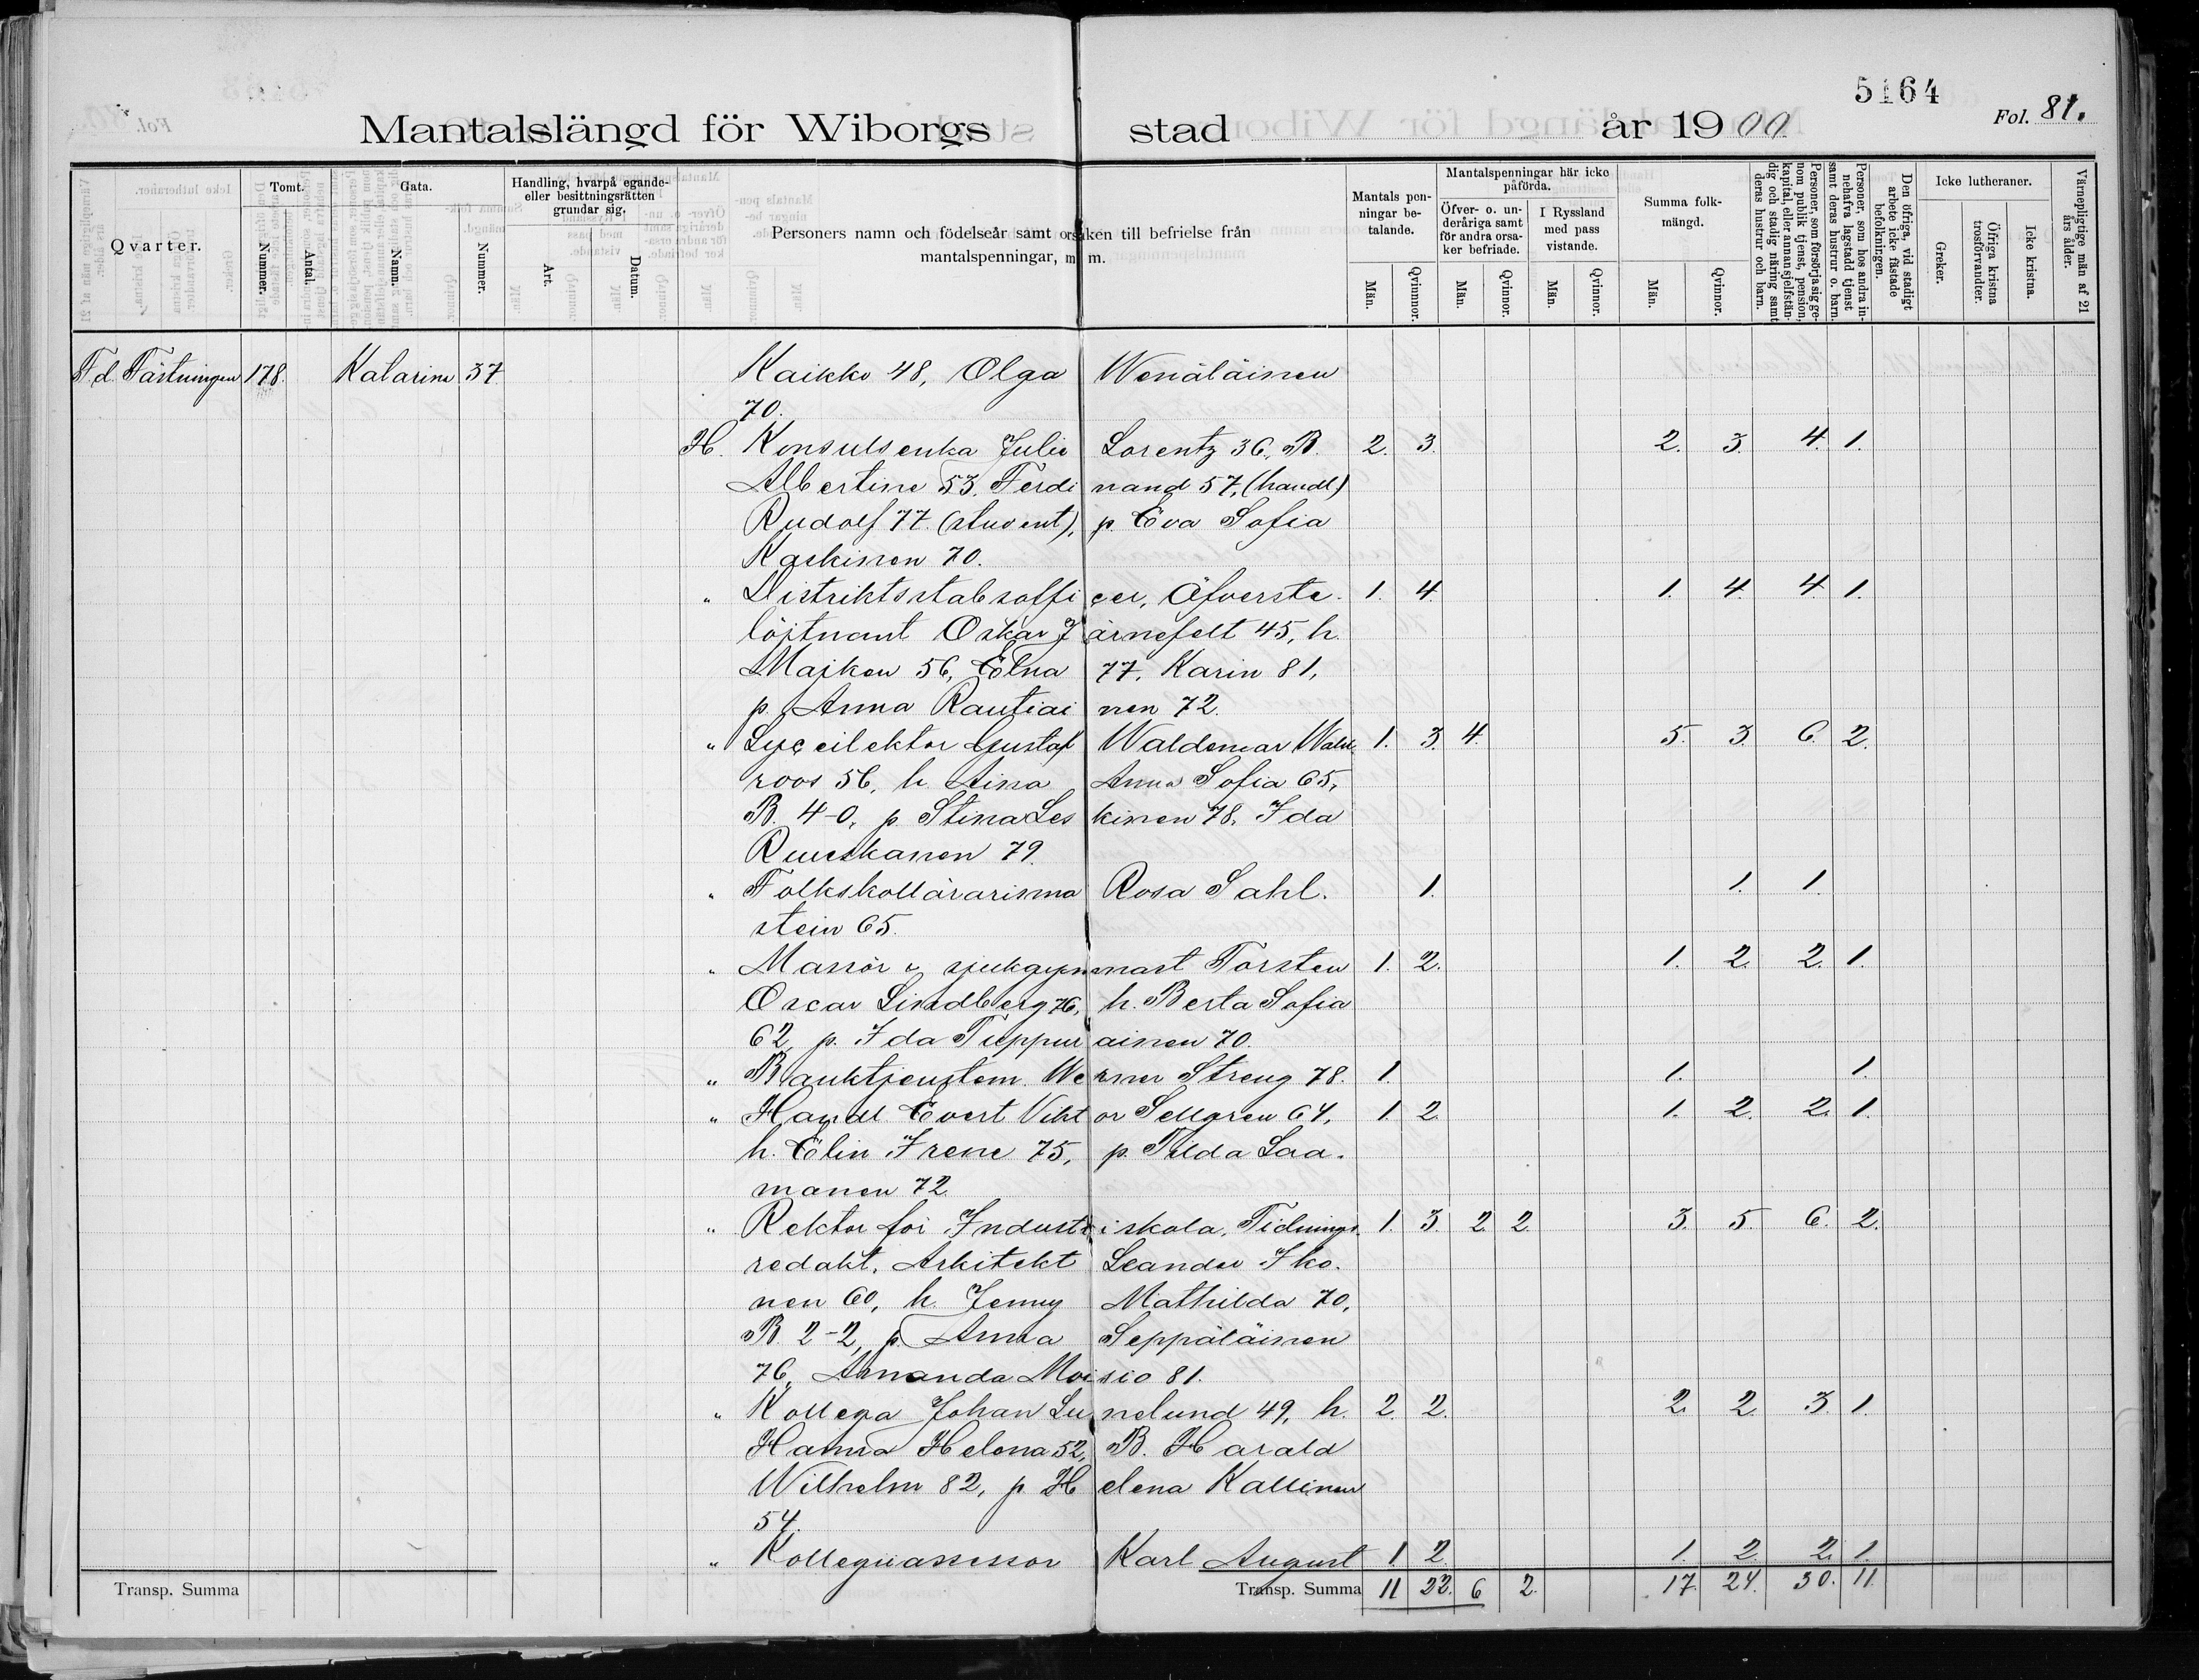 5164
Fol. 81.
Mantalslängd för Wiborgs stad år 1900
Qvarter.
Tomt.
Nummer.
Antal.
Gata.
Namn.
Nummer.
Handling, hvarpå egande-
eller besittningsrätten
grundar sig.
Art.
Datum.
Personers namn och födelseår samt orsaken till befrielse från
mantalspenningar, m m.
Mantals pen-
ningar be-
talande.
Män.
Qvinnor.
Mantalspenningar här icke
påförda.
Öfver- o. un-
deråriga samt
för andra orsa-
ker befriade.
Män.
Qvinnor.
I Ryssland
med pass
vistande.
Män.
Qvinnor.
Summa folk-
mängd.
Män.
Qvinnor.
Personer, som försörja sig ge-
nom publik tjenst, pension,
kapital, eller annan sjelfstän-
dig och stadig näring samt
deras hustrur och barn.
Personer, som hos andra in-
nehafva lagstadd tjenst
samt deras hustrur o. barn.
Den öfriga, vid stadigt
arbete icke fästade
befolkningen.
Icke lutheraner.
Greker.
Öfriga kristna
trosförvandter.
Icke kristna.
Värnepligtige män af 21
års ålder.
F.d. Fästningen 178. Katarine 37 Kaikko 48, Olga Wenäläinen
70.
H. Konsulsenka Julie Lorentz 36, B. 2. 3. 2. 3. 4. 1.
Albertine 53, Ferdinand 57, (handl)
Rudolf 77. (student), p. Eva Sofia
Kaskinen 70.
" Distriktsstabsofficer, Öfverste- 1. 4. 1. 4. 4. 1.
löjtnant Oskar Järnefelt 45, h.
Majken 56, Elna 77, Karin 81,
p. Anna Rautiainen 72.
" Lyceilektor Gustaf Waldemar Wahl- 1. 3. 4. 5. 3. 6. 2.
roos 56, h. Aina Anna Sofia 65,
B. 4-0, p. Stina Leskinen 78, Ida
Ruuskanen 79.
" Folkskollärarinna Rosa Sahl- 1. 1. 1.
stein 65.
" Massör o sjukgymnast Torsten 1. 2. 1. 2. 2. 1.
Oscar Lindberg 76, h. Berta Sofia
62, p. Ida Tuppurainen 70.
" Banktjenstem. Werner Streng 78. 1. 1. 1.
" Handl Evert Viktor Sellgren 64, 1. 2. 1. 2. 2. 1.
h. Elin Irene 75, p. Tilda Laa-
manen 72.
" Rektor för Industriskola, Tidnings- 1. 3. 2. 2. 3. 5. 6. 2.
redakt. Arkitekt Leander Iko-
nen 60, h. Jenny Mathilda 70,
B. 2-2, p. Anna Seppäläinen
76, Amanda Moisio 81.
" Kollega Johan Lunelund 49, h. 2. 2. 2. 2. 3. 1.
Hanna Helena 52, B. Harald
Wilhelm 82, p. Helena Kallinen
54.
" Kollegiiassessor Karl August 1 2. 1. 2. 2. 1.
Transp. Summa
Transp. Summa 11 22. 6 2. 17. 24. 30. 11.